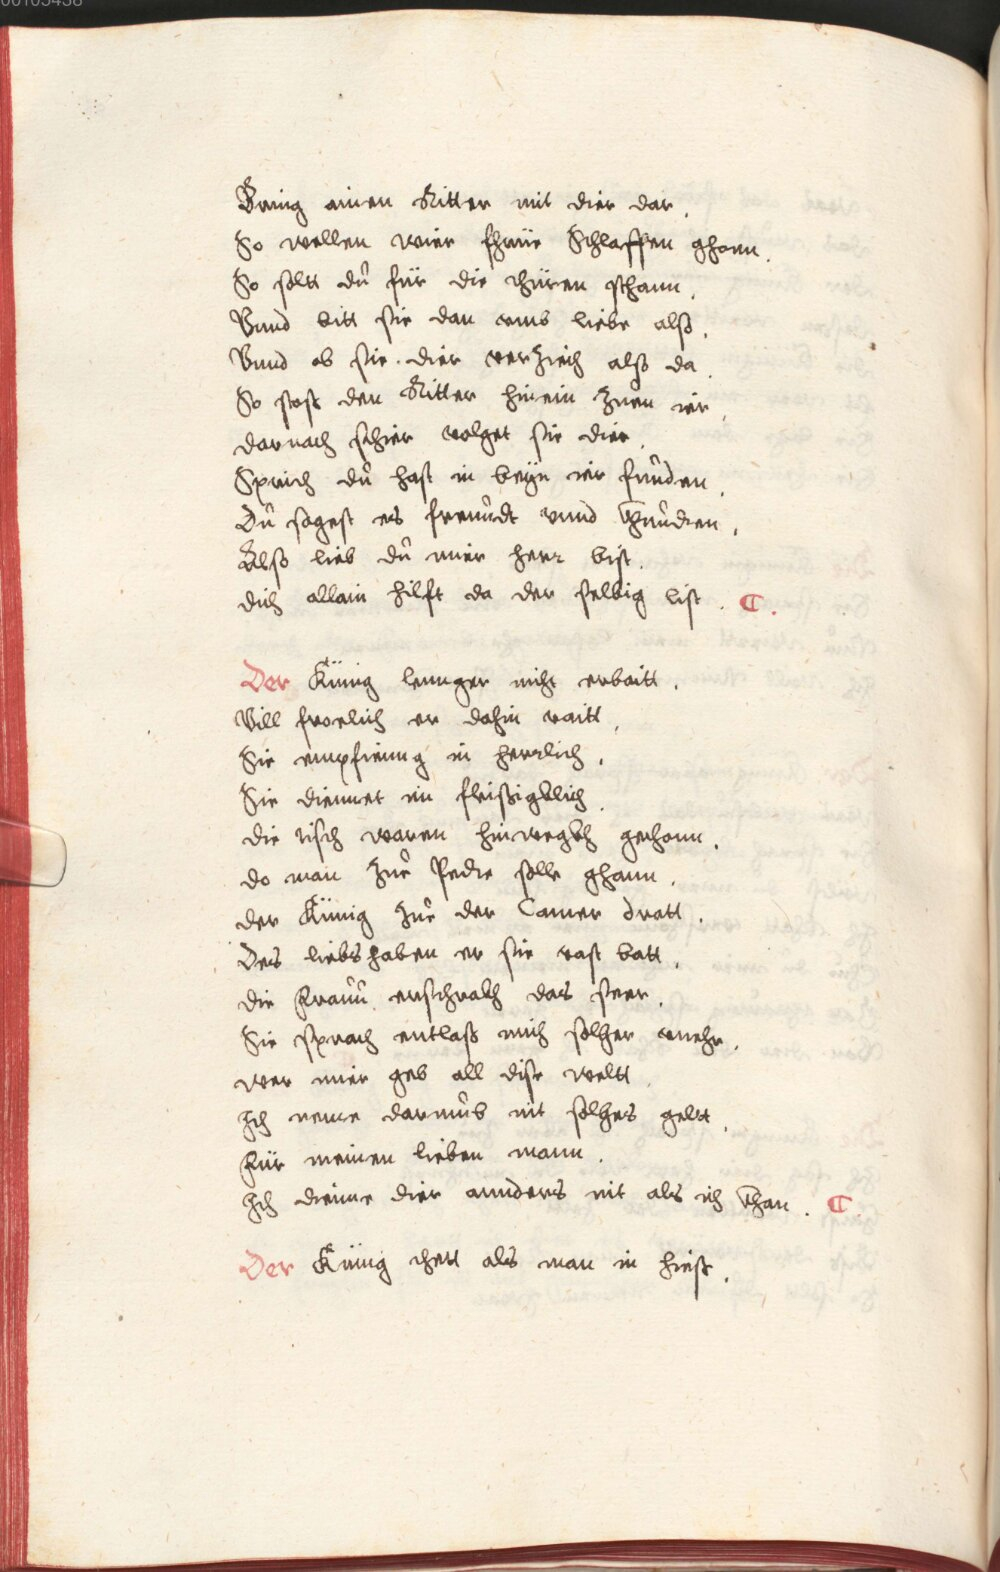 Bring ainen Ritter mit dier dar.
So wellen wier schier Schlaffen ghonn.
So soltt du für die thüren sthann.
Vnnd bitt sie dan vmb liebe alß.
Vnnd ob sie dier verzieh alß da.
So stost den Ritter hinein zuen ier.
darnach schier volget sie dier.
Sprich du hast in beyn ier funden.
Du sagest es freundt vnnd khunden.
Alß lieb du mier herr bist.
dich allain hilft da der selbig list.
Der Künig lennger nicht erbaitt.
Vill froelich er dahin raitt.
Sie empfienng in herrlich.
Sie diennet im fleissigklich.
die tisch waren hinwegkh gethonn.
do man zue Pedte solle ghann.
der Künig zue der Camer dratt.
Des liebshaben er sie vast batt.
die Frauu erschrakh das seer.
Sie sprach entlaß mich solher mehr.
wer mier geb all dise weltt
Ich neme darumb nit solhes geltt.
Für meinen lieben mann.
Ich dienne dier annders nit als ich khan.
Der Künig thett als man in hiess.